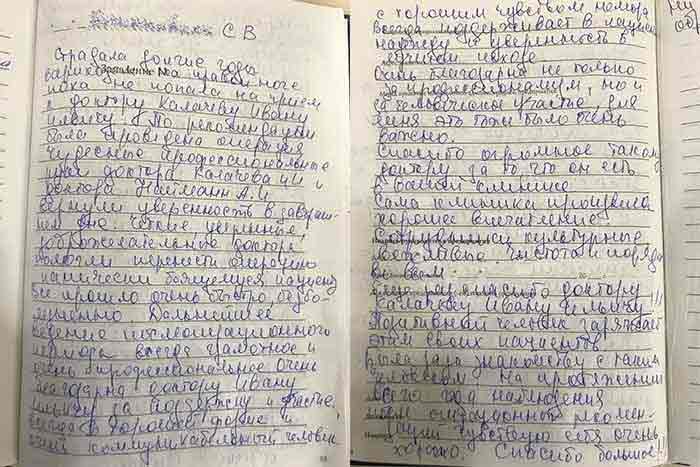 С В
Страдала долгие годы
варикозом на правой ноге
пока не попала на приём
к доктору Калачёву Ивану
Ильичу. По рекомендации
была проведена операция
Чудесные профессиональные
руки доктора Калачёва И И и
доктора Нейманн А. И
вернули уверенность в завтраш-
нем дне. Чёткие уверенные,
доброжелательные доктора
помогли перенести операцию
панически боящемуся пациенту
Всё прошло очень быстро, безбо-
лезненно Дальнейшее
ведение послеоперационного
периода всегда грамотное и
очень профессиональное очень
благодарна доктору Ивану
Ильичу за поддержку и участие,
всегда в хорошей форме и
очень коммуникабельный человек
с хорошим чувством юмора
Всегда поддерживает в пациенте
надежду и уверенность в
лучшем исходе.
Очень благодарна не только
за профессионализм, но и
за человеческое участие, для
меня это тоже было очень
важно.
Спасибо огромное такому
доктору за то что он есть
в Вашей клинике
Сама клиника произвела
хорошее впечатление
Сотрудники культурные
вежливые, чистота и порядок
во всём
еще раз спасибо доктору
Калачёву Ивану Ильичу!!!
Позитивный человек заряжает
этим своих пациентов
Была рада знакомству с таким
человеком. На протяжении
всего год наблюдения
чувствую себя очень
хорошо. Спасибо большое!!